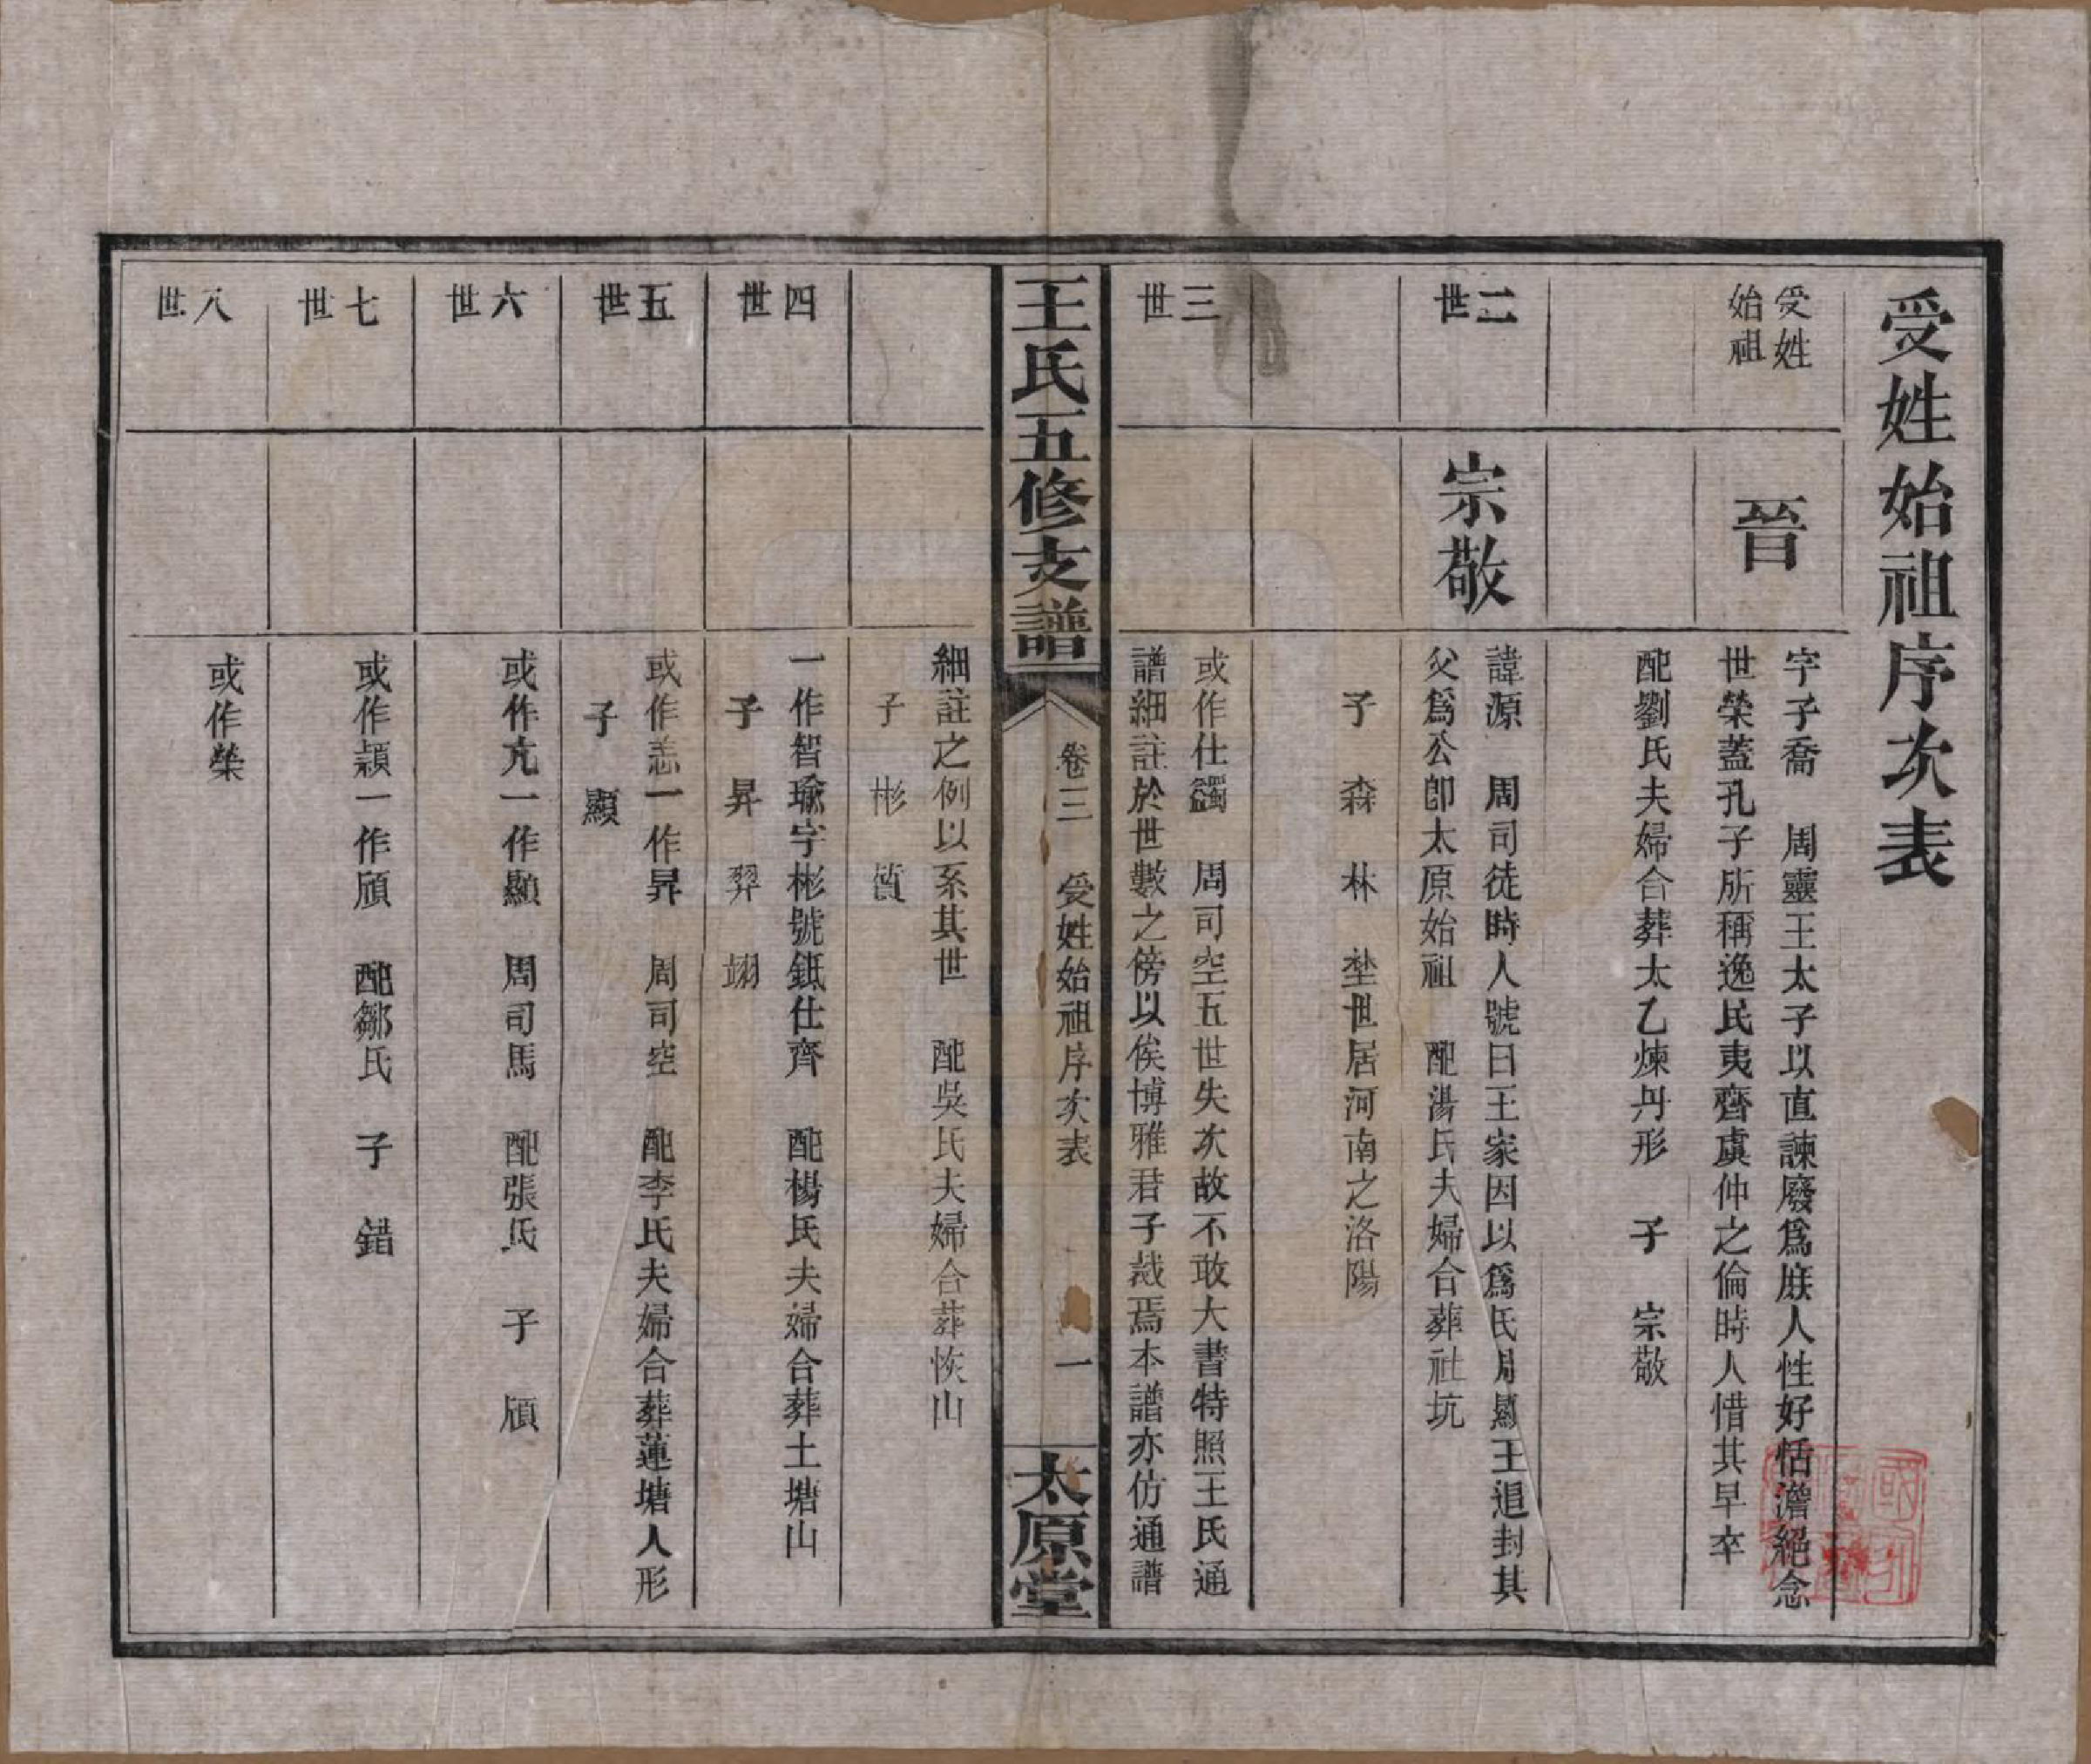 受姓始祖序次表
受姓
始祖
晉
字子喬　周靈王太子以直諫廢爲庶人性好恬澹絕念
世榮蓋孔子所稱逸民夷齊虞仲之倫時人惜其早卒
配劉氏夫婦合葬太乙煉丹形　子　宗敬
二
世
宗敬
諱源　周司徒時人號曰王家因以爲氏周顯王追封其
父爲公卽太原始祖　配湯氏夫婦合葬社坑
子　森　林　埜世居河南之洛陽
三
世
或作仕蠲　周司空五世失次故不敢大書特照王氏通
譜細註於世數之傍以俟博雅君子裁焉本譜亦仿通譜
王氏五修支譜
卷三　受姓始祖序次表
一
太原堂
細註之例以系其世　配吳氏夫婦合葬恢山
子　彬　質
四
世
一作智瑜字彬號鉦仕齊　配楊氏夫婦合葬土塘山
子　昇　羿　翊
五
世
或作恙一作昇　周司空　配李氏夫婦合葬蓮塘人形
子　顯
六
世
或作亢一作顯　周司馬　配張氏　子　頎
七
世
或作潁一作頎　配鄒氏　子　錯
八
世
或作榮